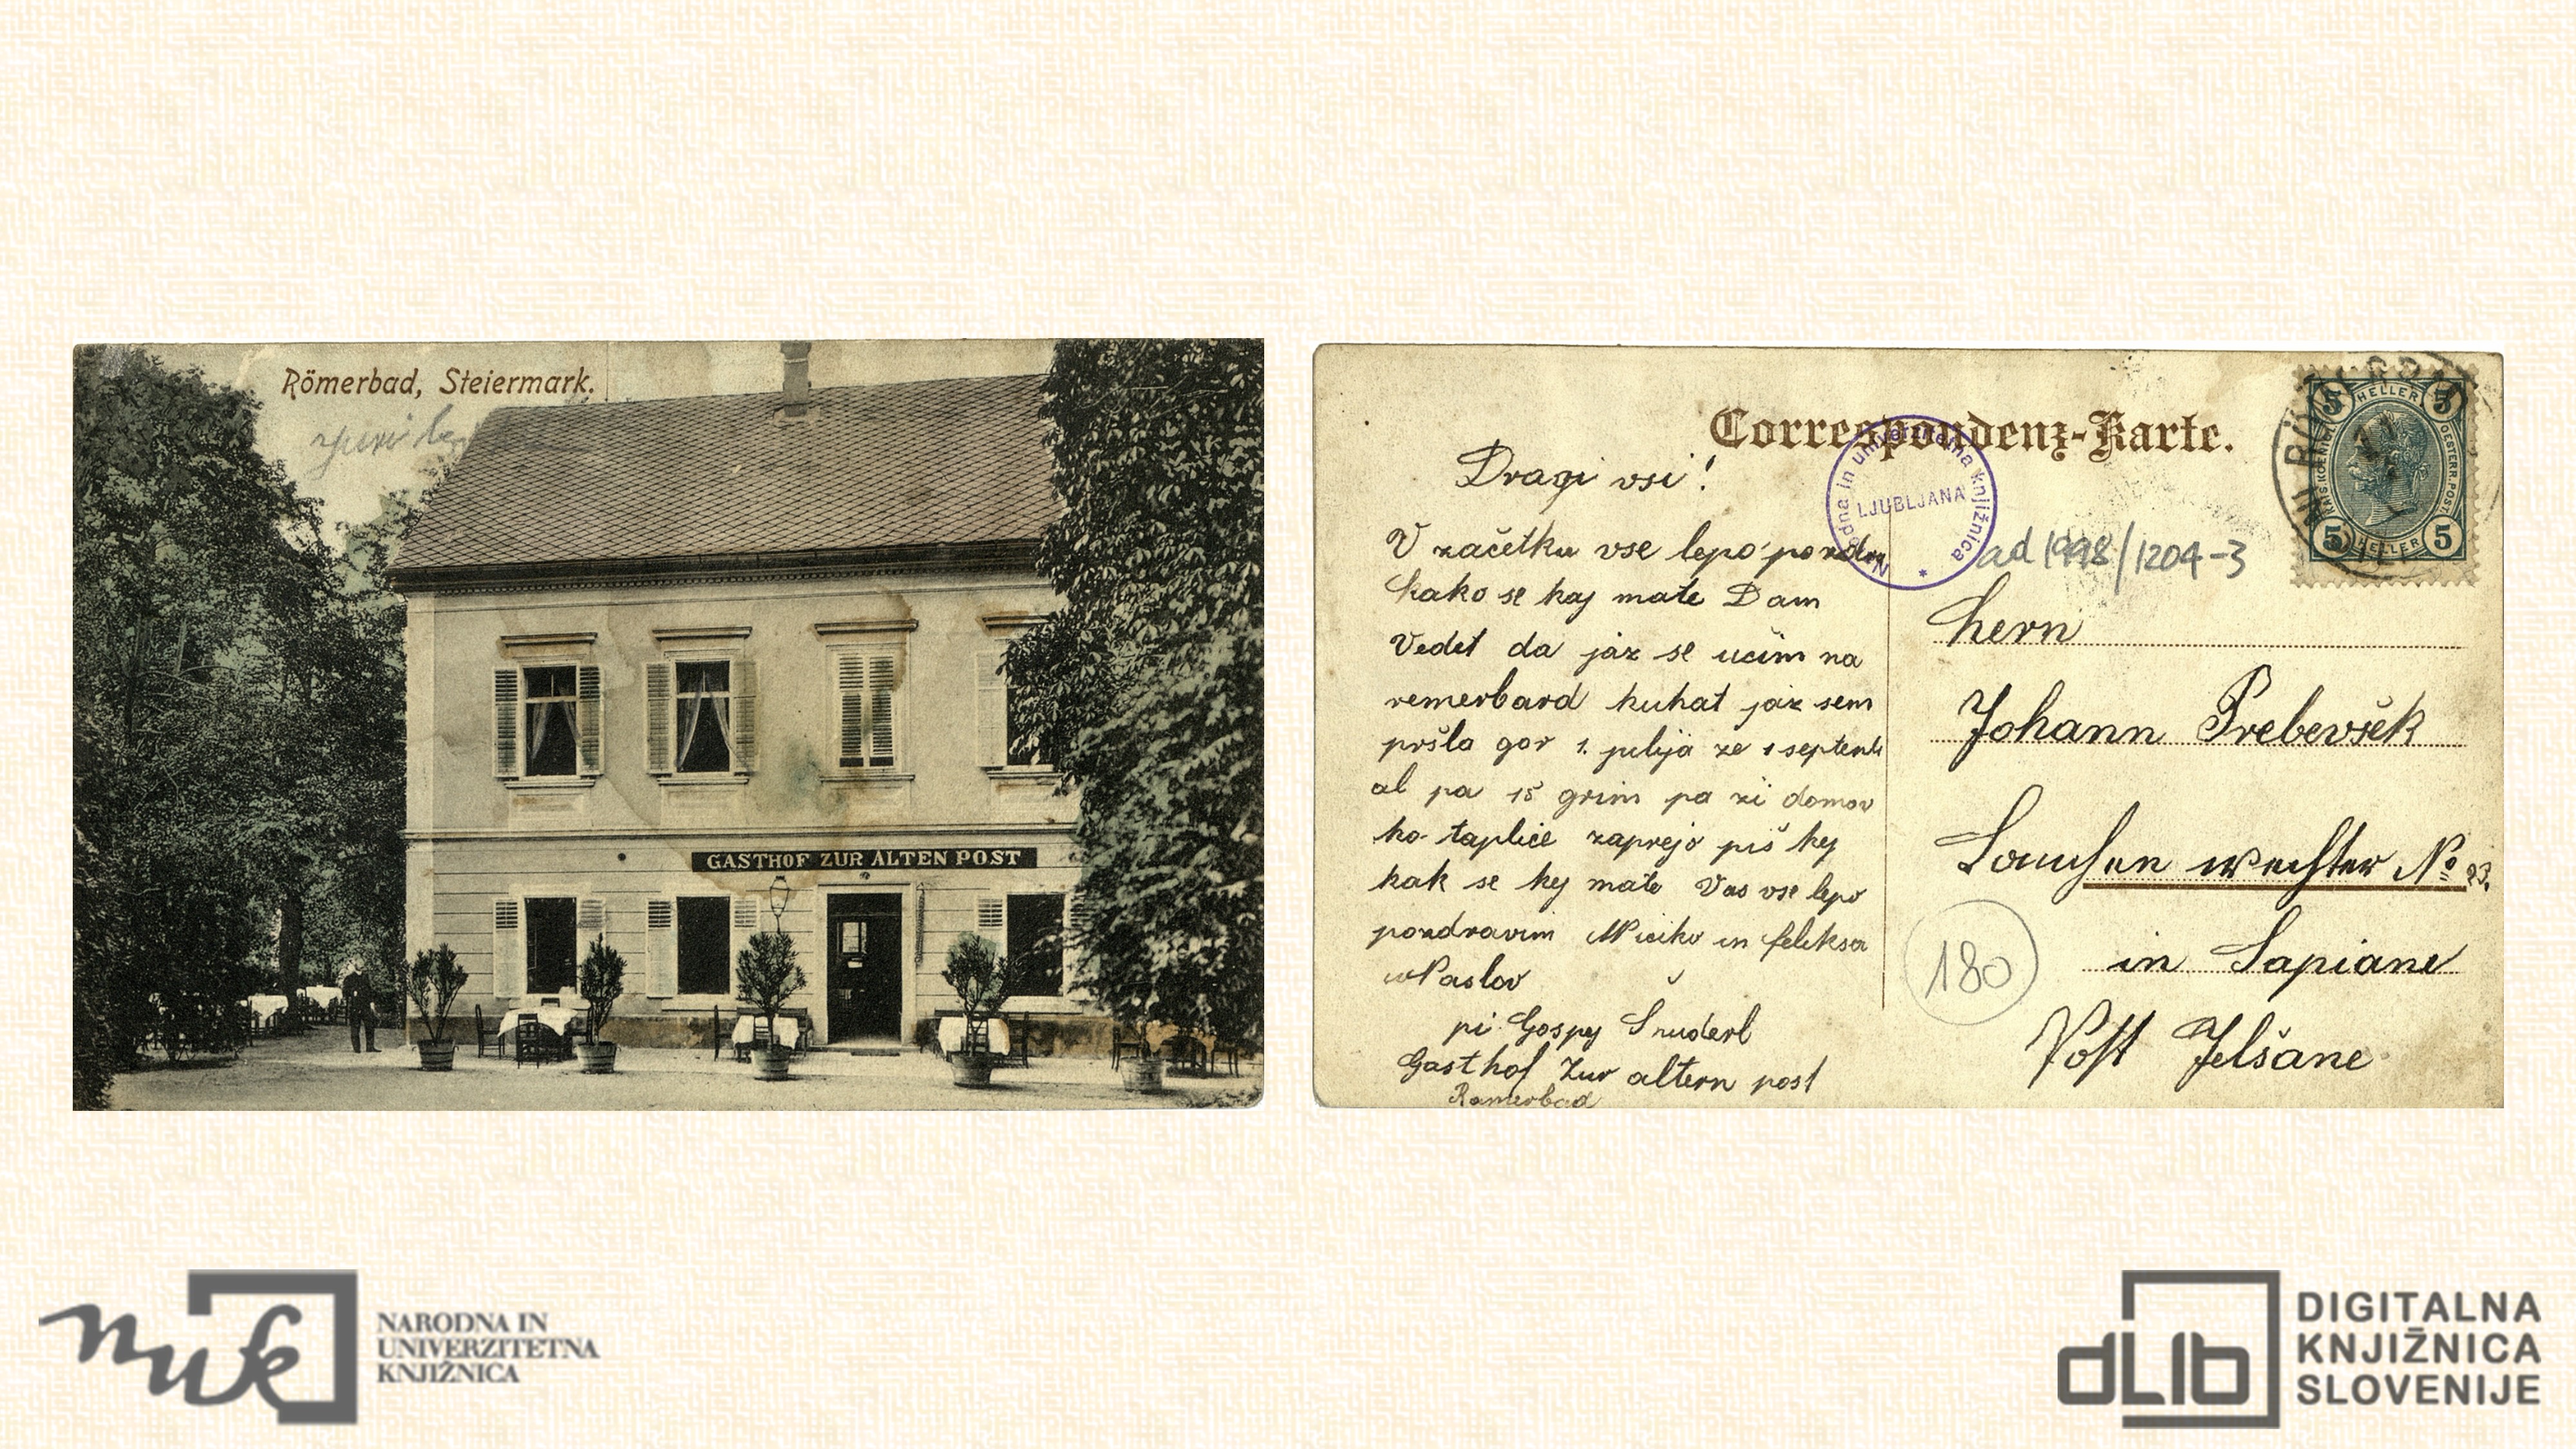 Römerbad, Steiermark.
GASTHOF ZUR ALTEN POST
Correspondenz-Karte.
Dragi vsi!
V začetku vse lepo pozdra
kako se kaj mate Dam
Vedet da jaz se učim na
remerbard kuhat jaz sem
pršla gor 1. julija ze 1 septemb
al pa 15 grim pa zi domov
ko taplice zaprejo piš kej
kak se kej mate Vas vse lepo
pozdravim Micika in feleksa
Naslov
pi Gospej
Gasthof Zur altern post
Ramerbad
Narodna in univerzitetna knjižnica
LJUBLJANA
5 HELLER 5
KAIS. KOENIGL. OESTERR. POST
5 HELLER 5
ad 1998/1204-3
hern
Johann Prebevšek
wechter No 93.
in Sapiane
Post Jelšane
180
NARODNA IN
UNIVERZITETNA
KNJIŽNICA
nuk
dLib
DIGITALNA
KNJIŽNICA
SLOVENIJE